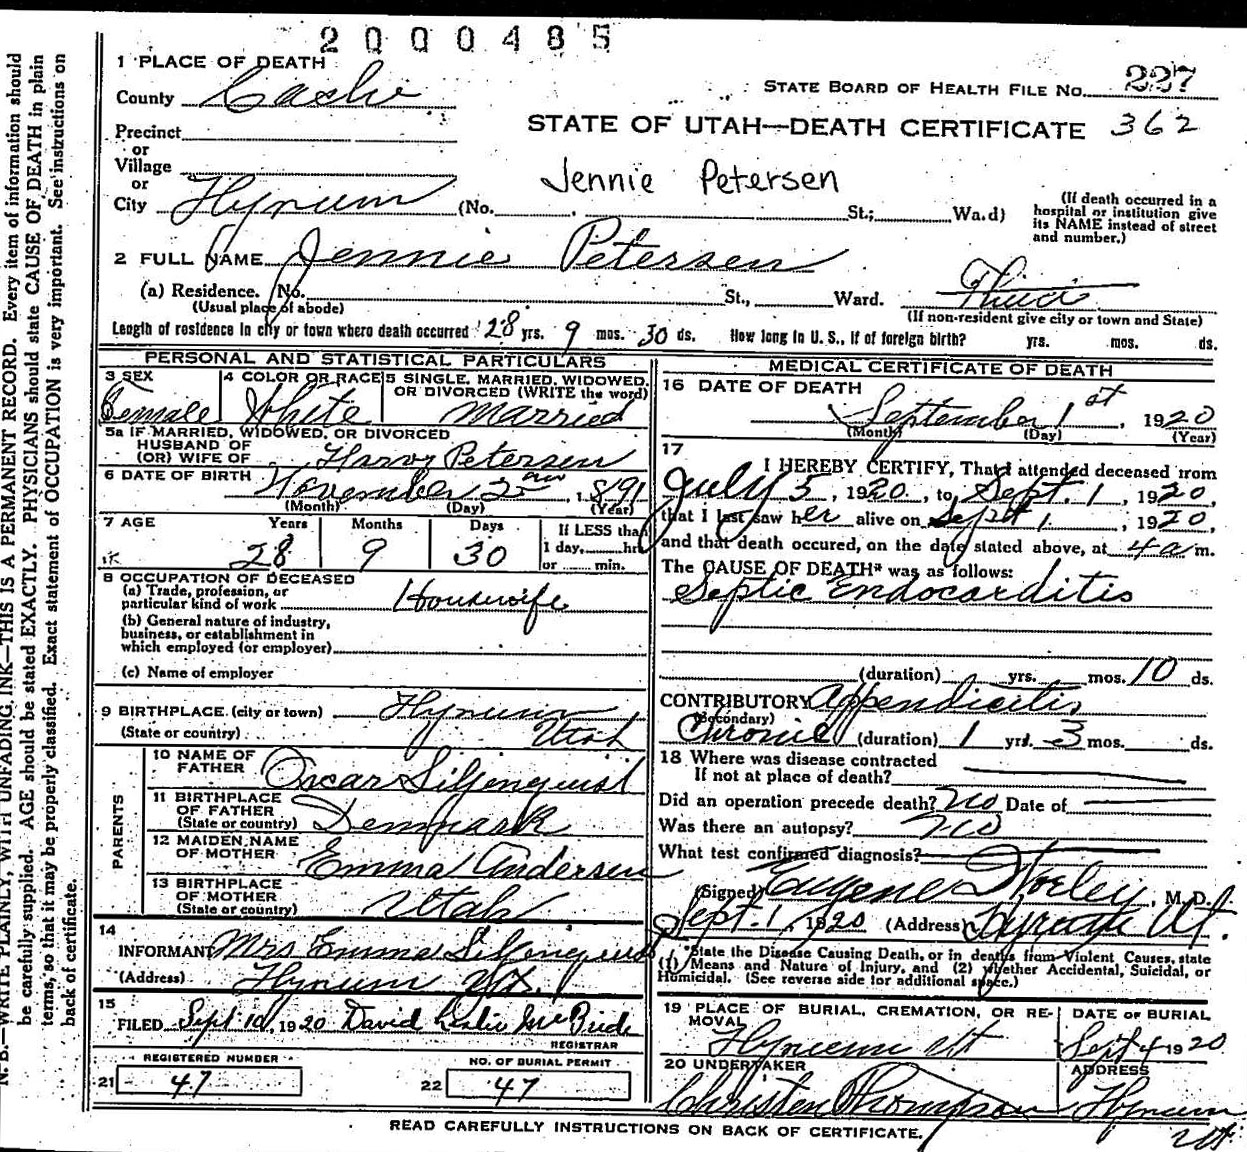 2000485
1 PLACE OF DEATH
STATE BOARD OF HEALTH FILE No. 227
County Cache
STATE OF UTAH—DEATH CERTIFICATE 362
Precinct
or
Village
or
Jennie Petersen
City Hyrum (No. St.; Ward)
(If death occurred in a hospital or institution give its NAME instead of street and number.)
2 FULL NAME Jennie Petersen
(a) Residence. No. St., Ward.
(Usual place of abode)
(If non-resident give city or town and State)
Length of residence in city or town where death occurred 28 yrs. 9 mos. 30 ds. How long in U. S., if of foreign birth? yrs. mos. ds.
PERSONAL AND STATISTICAL PARTICULARS
3 SEX Female
4 COLOR OR RACE White
5 SINGLE, MARRIED, WIDOWED, OR DIVORCED (WRITE the word) Married
5a IF MARRIED, WIDOWED, OR DIVORCED
HUSBAND OF
(OR) WIFE OF Harvy Petersen
6 DATE OF BIRTH November 2nd, 1891
(Month) (Day) (Year)
7 AGE Years Months Days If LESS than
28 9 30 1 day, hrs.
or min.
8 OCCUPATION OF DECEASED
(a) Trade, profession, or
particular kind of work Housewife
(b) General nature of industry,
business, or establishment in
which employed (or employer)
(c) Name of employer
9 BIRTHPLACE (city or town) Hyrum
(State or country) Utah
PARENTS
10 NAME OF FATHER Oscar Liljenquist
11 BIRTHPLACE OF FATHER (State or country) Denmark
12 MAIDEN NAME OF MOTHER Emma Andersen
13 BIRTHPLACE OF MOTHER (State or country) Utah
14 INFORMANT Mrs Emma Liljenquist
(Address) Hyrum Ut.
15 FILED Sept 10, 1920 David Leslie McBride
REGISTRAR
REGISTERED NUMBER
21 47
NO. OF BURIAL PERMIT
22 47
MEDICAL CERTIFICATE OF DEATH
16 DATE OF DEATH
September 1st, 1920
(Month) (Day) (Year)
17
I HEREBY CERTIFY, That I attended deceased from
July 5, 1920, to Sept. 1, 1920,
that I last saw her alive on Sept 1, 1920,
and that death occured, on the date stated above, at 4 a m.
The CAUSE OF DEATH* was as follows:
Septic Endocarditis
(duration) yrs. mos. 10 ds.
CONTRIBUTORY Appendicitis
(Secondary)
Chronic (duration) 1 yrs. 3 mos. ds.
18 Where was disease contracted
If not at place of death?
Did an operation precede death? no Date of
Was there an autopsy? no
What test confirmed diagnosis?
(Signed) Eugene Worley, M. D.
Sept. 1, 1920 (Address) Hyrum Ut.
*State the Disease Causing Death, or in deaths from Violent Causes, state
(1) Means and Nature of Injury, and (2) whether Accidental, Suicidal, or
Homicidal. (See reverse side for additional space.)
19 PLACE OF BURIAL, CREMATION, OR REMOVAL
Hyrum Ut
DATE OF BURIAL
Sept 4 1920
20 UNDERTAKER
Christen Thompson
ADDRESS
Hyrum
Ut.
READ CAREFULLY INSTRUCTIONS ON BACK OF CERTIFICATE.
N. B.—WRITE PLAINLY, WITH UNFADING INK—THIS IS A PERMANENT RECORD. Every item of information should
be carefully supplied. AGE should be stated EXACTLY. PHYSICIANS should state CAUSE OF DEATH in plain
terms, so that it may be properly classified. Exact statement of OCCUPATION is very important. See instructions on
back of certificate.